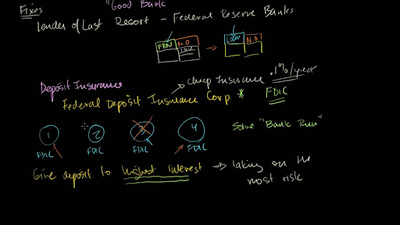 Fixes
"Good Bank"
Lender of Last Resort - Federal Reserve Banks
FRN
N.D
LOAN
N.D
Deposit Insurance
cheap Insurance .1%/year
Federal Deposit Insurance Corp *
FDIC
1 2 3 4
Solve "Bank Run"
FDIC FDIC FDIC FDIC
Give deposit to highest interest → taking on the
most risk